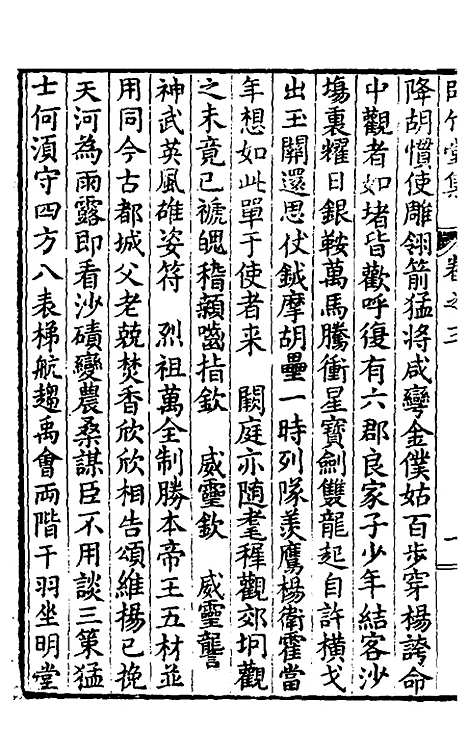 竹堂集 卷之三 一
降胡慣使雕翎箭猛將咸彎金僕姑百步穿楊誇命
中觀者如堵皆歡呼復有六郡良家子少年結客沙
塲裏耀日銀鞍萬馬騰衝星寶劍雙龍起自許橫戈
出玉關還思仗鉞摩胡壘一時列隊羡鷹楊衛霍當
年想如此單于使者来 闕庭亦随耄稺觀郊坰觀
之未竟已褫魄稽顙嚙指欽 威靈欽 威靈讋
神武英風雄姿符 烈祖萬全制勝本帝王五材並
用同今古都城父老兢焚香欣欣相告頌維楊已挽
天河為雨露即看沙磧變農桑謀臣不用談三策猛
士何湏守四方八表梯航趨禹會両階干羽坐明堂